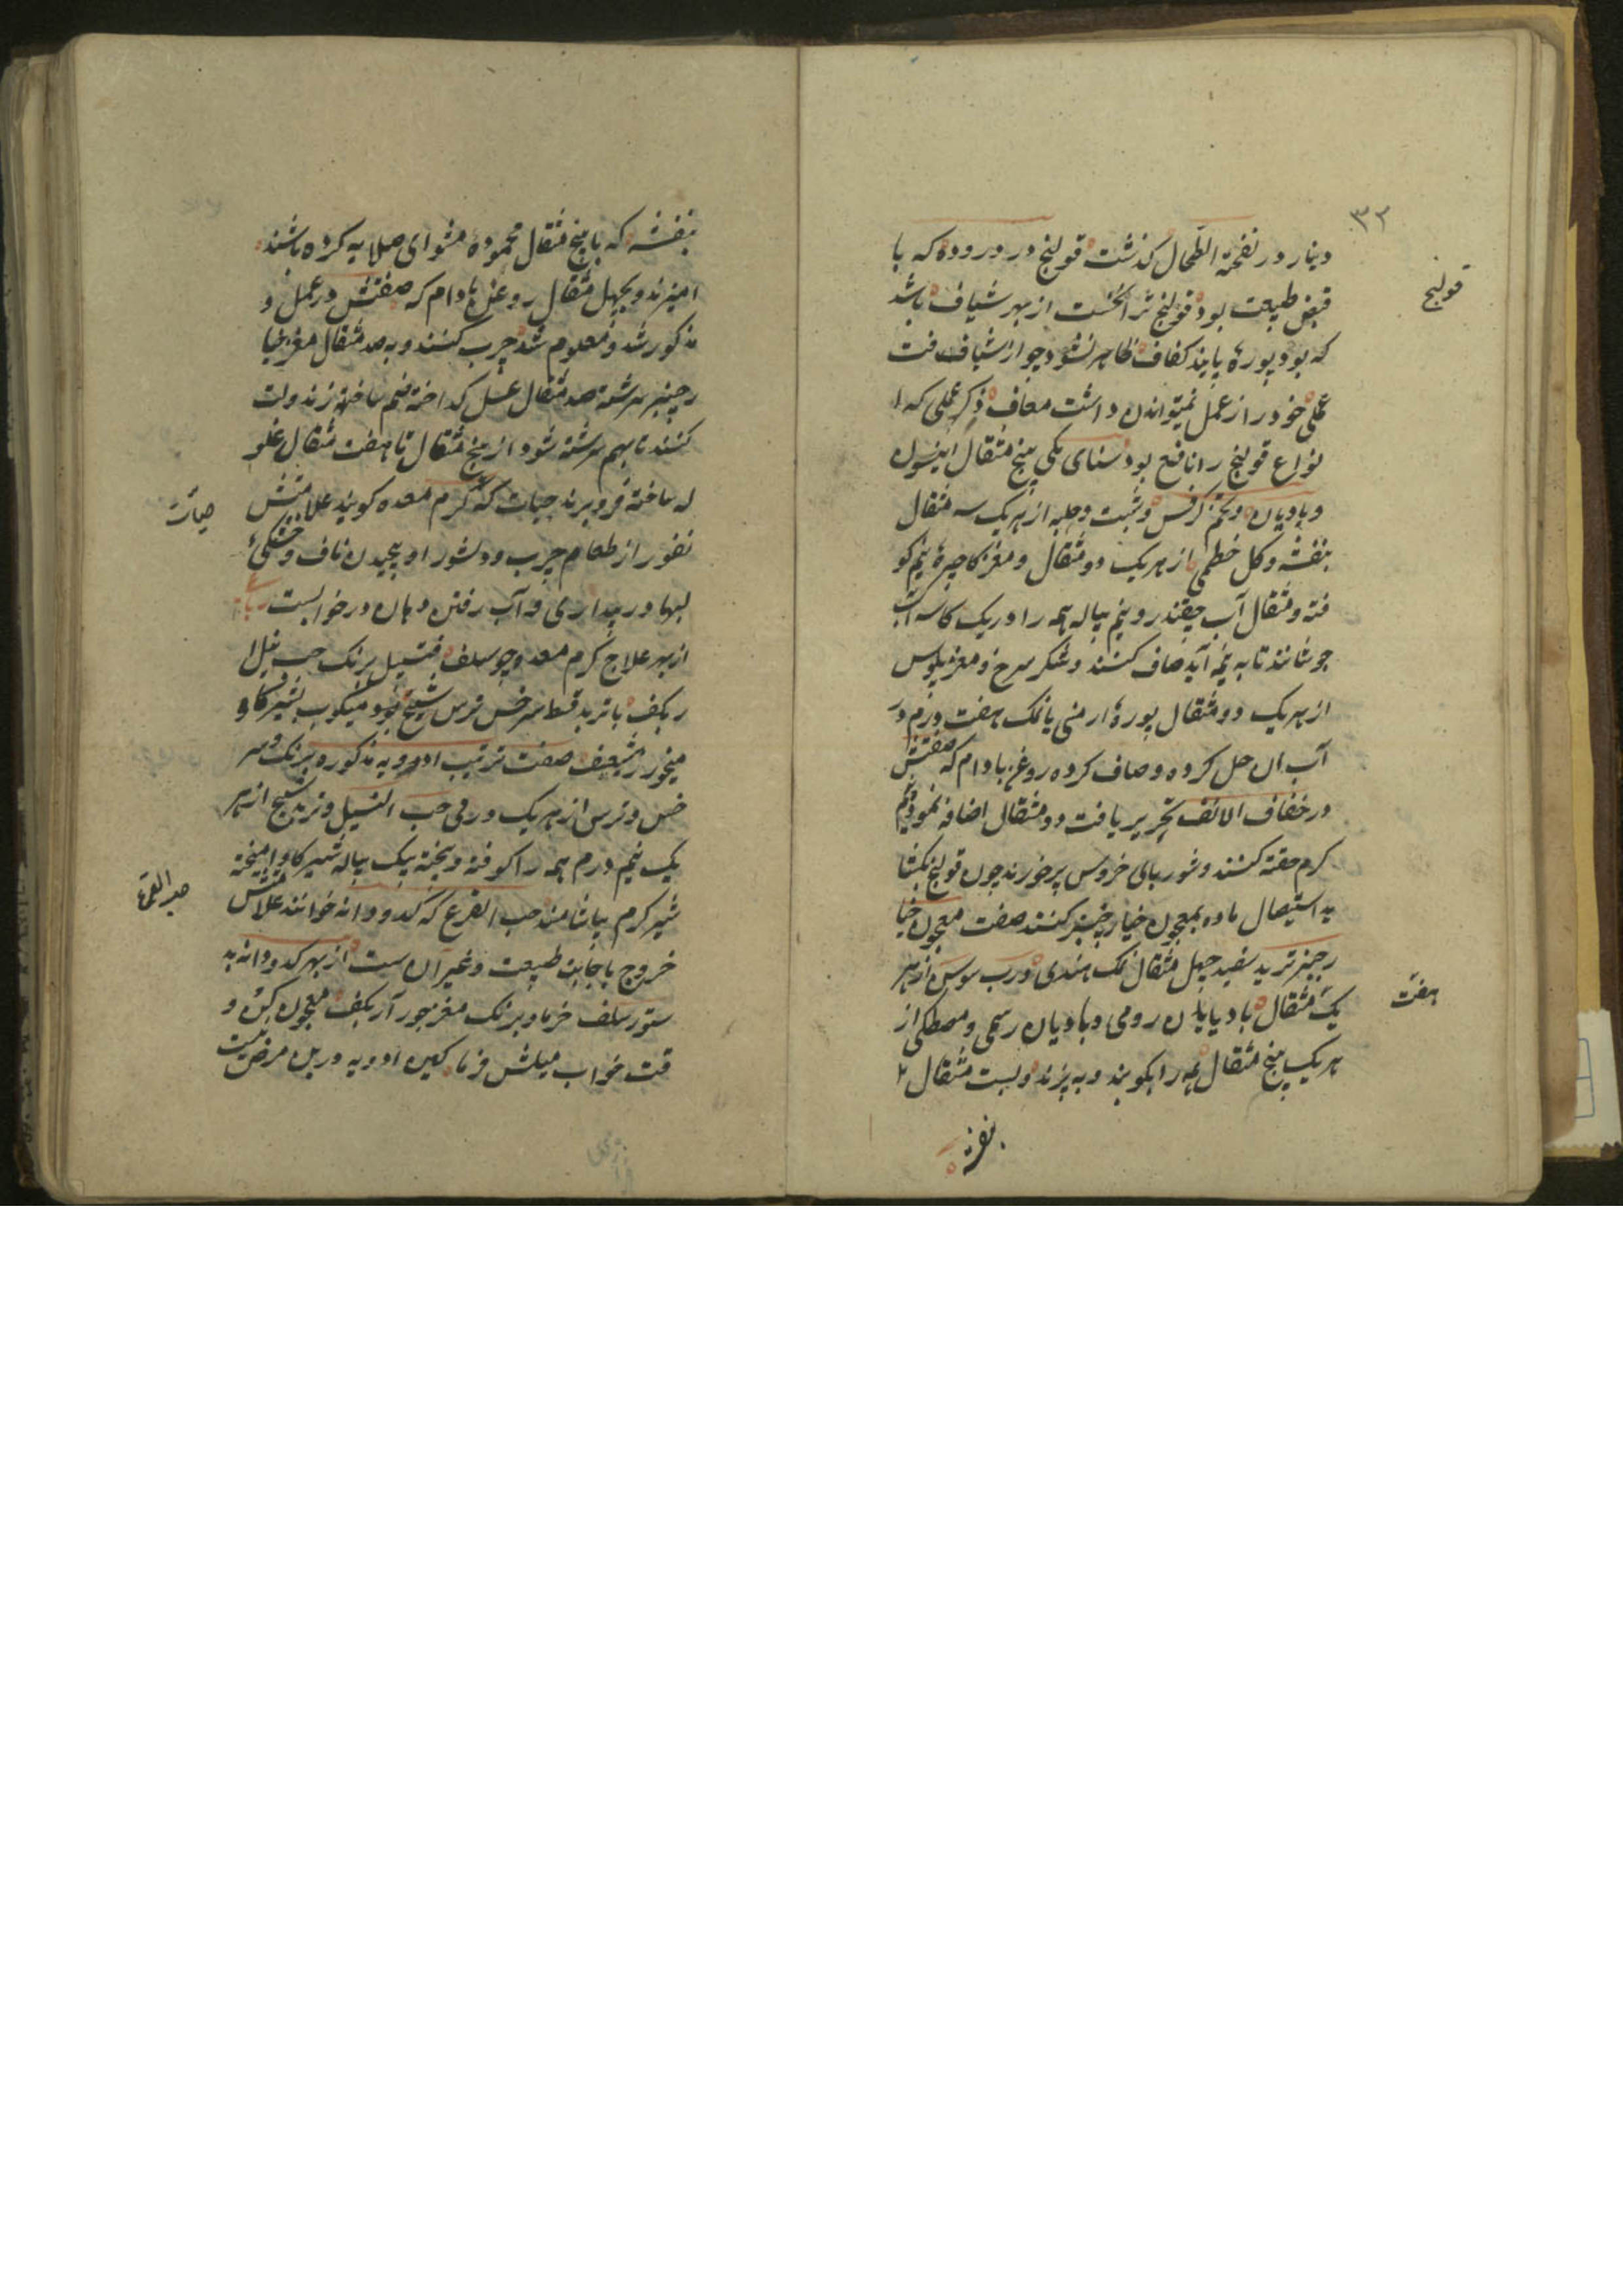 ۳۲
دینار در نفخة الطحال کذشت قولنج درد روده که با
قولنج
قبض طبیعت بود قولنج ترا نخست از بهر شیاف باشد
که بود بوره باید کفاف ظاهر نشود چو از شیافت
عملی خود را از عمل نمیتوان داشت معاف ذکر عملی که ا
نواع قولنج را نافع بود سنای مکی پنج مثقال انیسون
وبادیان وتخم کرفس وشبت وحلبه از هر یک سه مثقال
بنفشه وکل خطمی از هر یک دو مثقال ومغز کاجیره نیم کو
فته ومثقال آب چقندر ونیم پیاله همه را در یک کاسه آب
جوشانند تا به نیمه آید صاف کنند وشکر سرخ ومغز فلوس
از هر یک دو مثقال بوره ارمنی یا نمک هفت درم در
آب ان حل کرده وصاف کرده روغن بادام که صفتش
در جفاف الانف تحریر یافت دو مثقال اضافه نموده نیم
کرم حقنه کنند وشوربای خروس پر خورند چون قولنج بکشا
ید استیصال ماده بمعجون خیار چنبر کنند صفت معجون خیا
رچنبر تربد سفید چهل مثقال نمک هندی ورب سوس از هر
یک مثقال بادیان رومی وبادیان رسمی ومصطکی از
هفت
هر یک پنج مثقال همه را بکوبند وبه پزند وبیست مثقال
بنفشه که با پنج مثقال محموده مشوای صلایه کرده باشند
امیزند وبچهل مثقال روغن بادام که صفتش در عمل و
مذکور شد ومعلوم شد چرب کنند وبه صد مثقال مغز خیا
رچنبر سرشته صد مثقال عسل کداخته ضم ساخته زند ولت
کنند تا بهم سرشته شود از پنج مثقال تا هفت مثقال غلو
له ساخته فرو برند حیات که کرم معده کویند علامتش
حیات
نفور از طعام چرب ودلشور او پیچیدن ناف وخشکی
لبها در بیداری وآب رفتن دهان در خوابست
از بهر علاج کرم معده چو سلف قنبیل برنک حب نیل ا
ر بکف با تربد قسط سرخس ترس شیح میکوب بشیر کاو
میخور صفت ترتیب ادویه مذکوره برنک وسر
خس وترس از هر یک درمی حب النیل وتربد شیح از هر
یک نیم درم همه را کوفته وبیخته بیک پیاله شیر کاو امیخته
شیر کرم بیاشامند حب القرع که کدو دانه خوانند علامتش
حب القرع
خروج باجابت طبیعت وغیر آن ست از بهر کدو دانه به
ستور سلف خرما وبرنک مغز جوز آر بکف معجون کن و
قت خواب میلش فرما کین ادویه در این مرض نیست